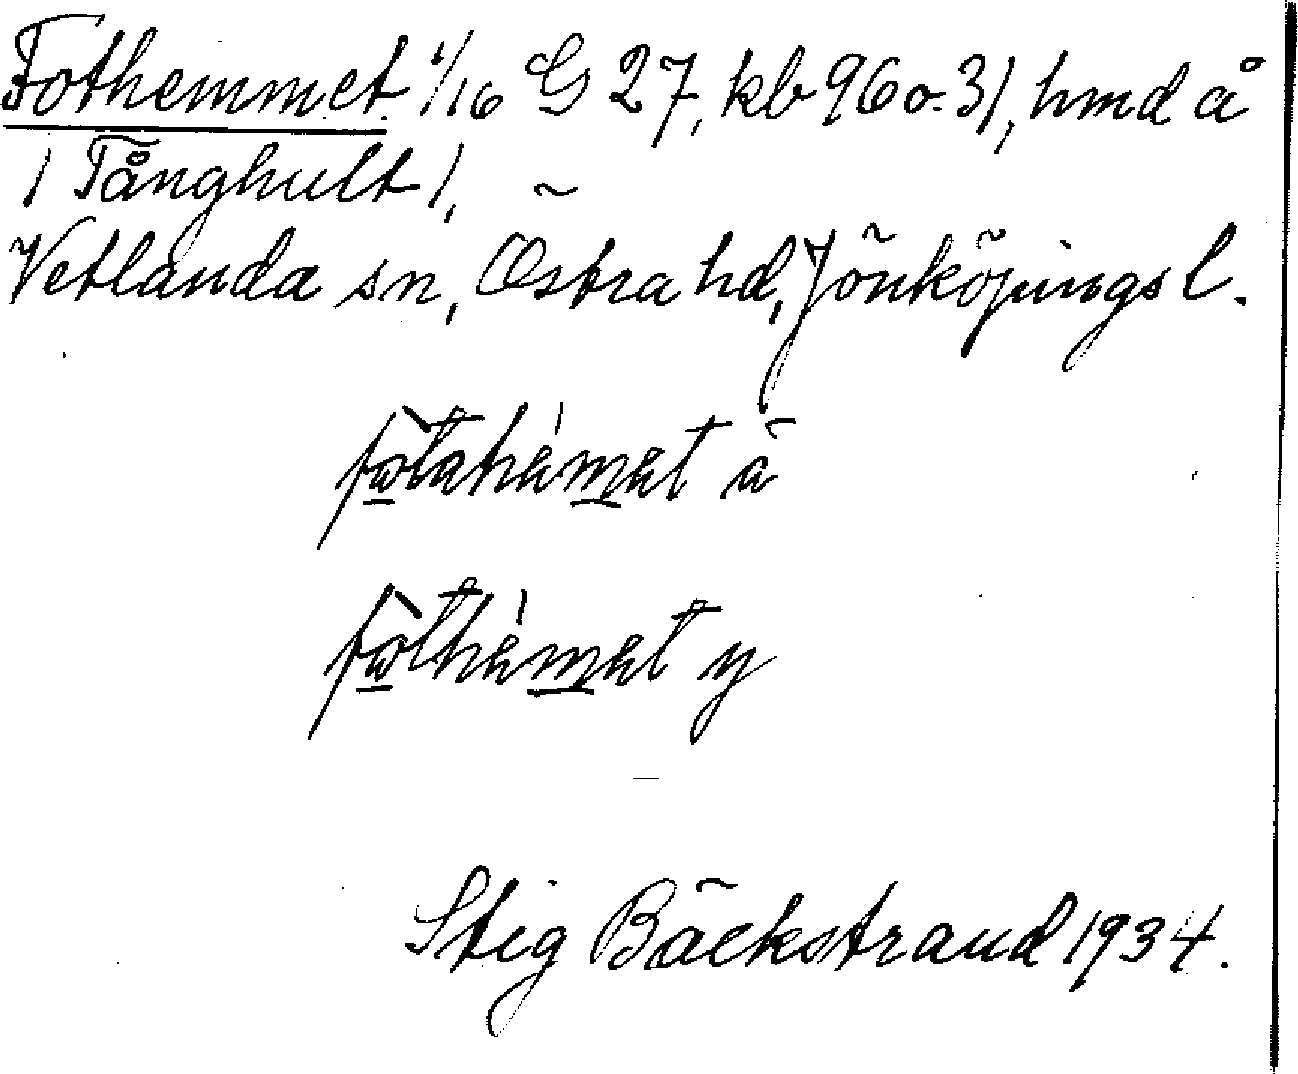 Fothemmet. 1/16 G 27, kb 96 o. 31, hmd å
/ Tånghult /,
Vetlanda sn, Östra hd, Jönköpings l.
fòtahémet ä
fòthémet y
Stig Bäckstrand 1934.